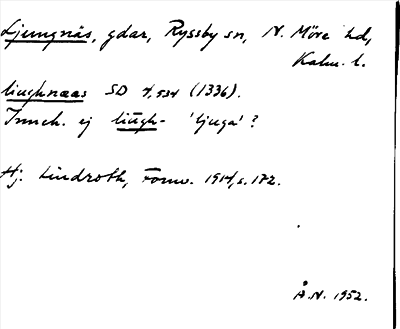 Ljungnäs, gdar, Ryssby sn, N. Möre hd,
Kalm. l.
liughnaas SD 4,534 (1336).
Inneh. ej liūgh- 'ljuga'?
Hj. Lindroth, Fornv. 1914, s. 172.
Å.N. 1952.